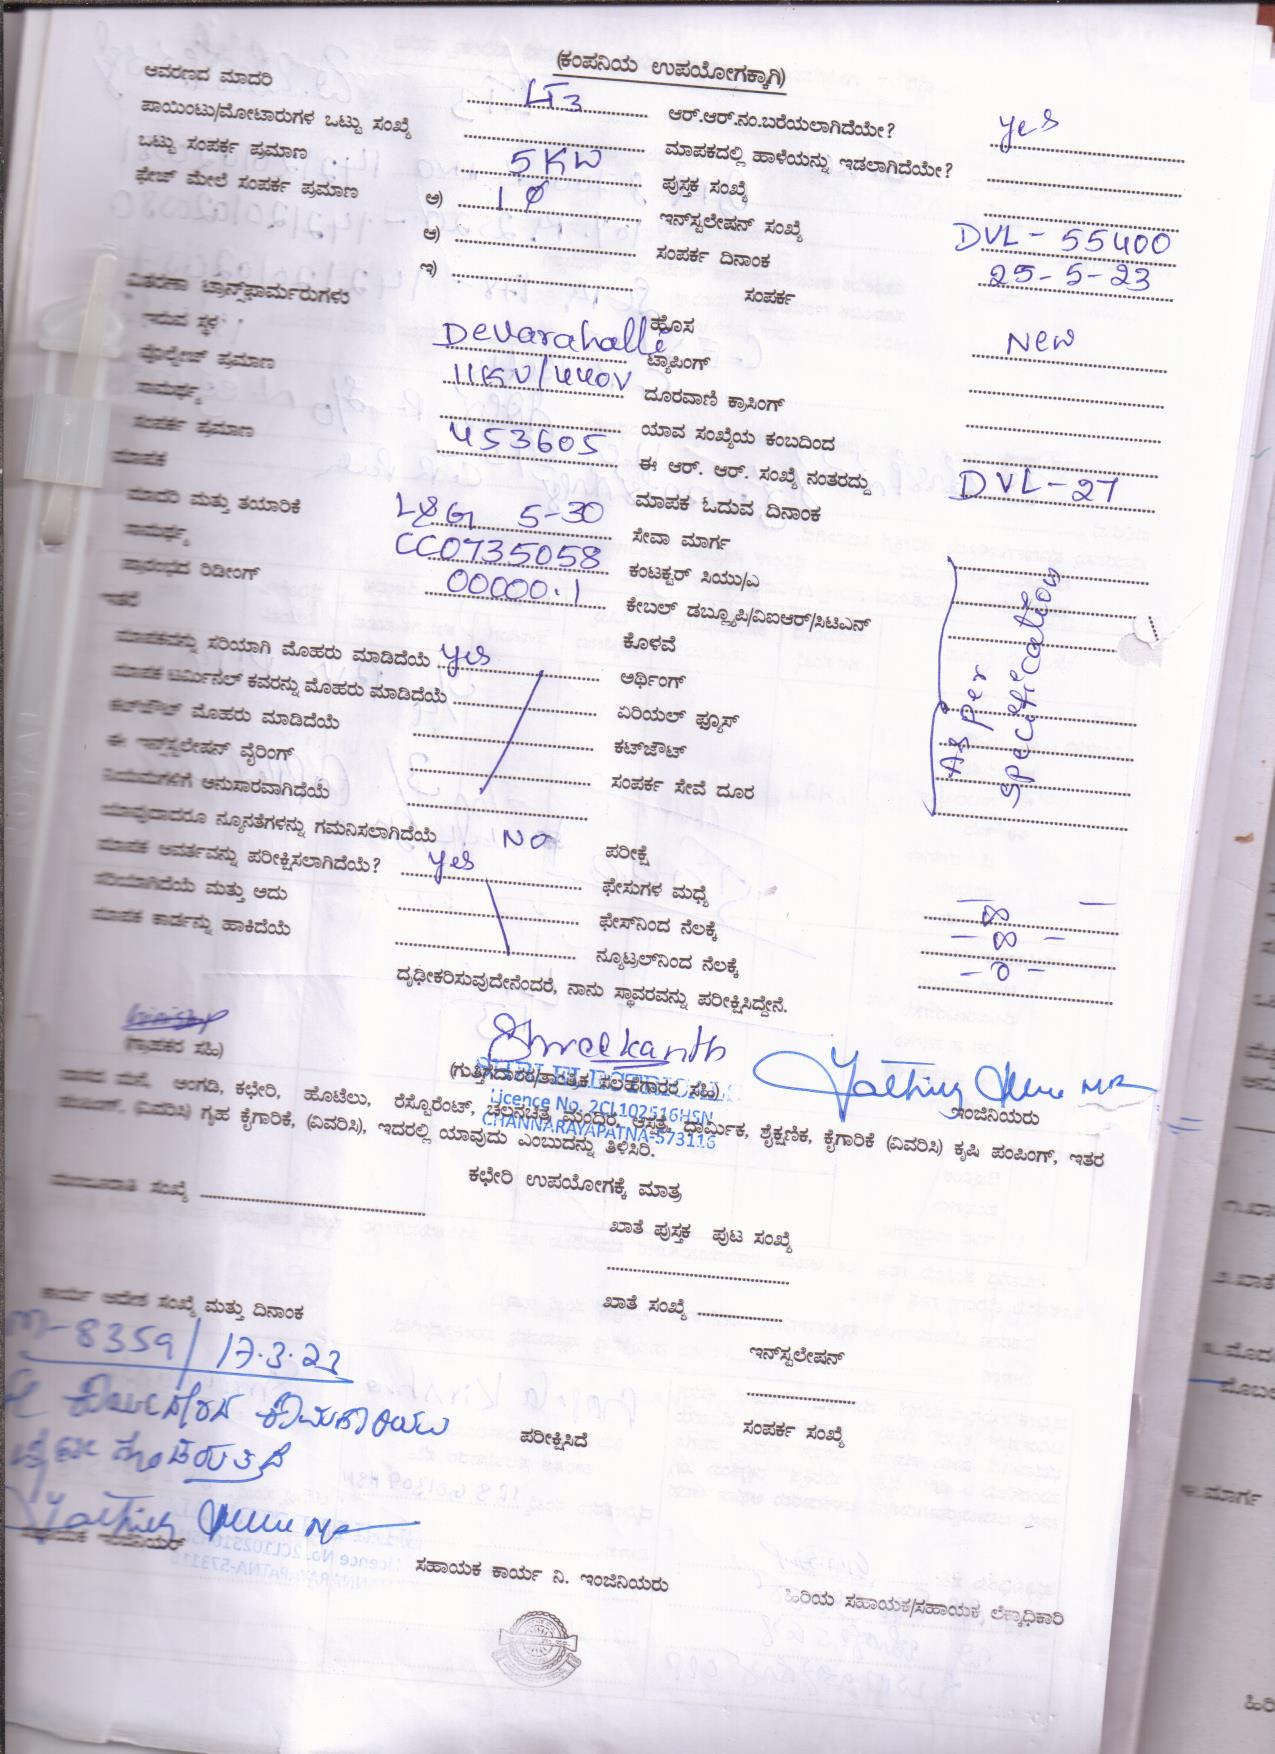 (ಕಂಪನಿಯ ಉಪಯೋಗಕ್ಕಾಗಿ)
ಆವರಣದ ಮಾದರಿ LT3 ಆರ್.ಆರ್.ನಂ.ಬರೆಯಲಾಗಿದೆಯೇ? yes
ಪಾಯಿಂಟು/ಮೋಟಾರುಗಳ ಒಟ್ಟು ಸಂಖ್ಯೆ ಮಾಪಕದಲ್ಲಿ ಹಾಳೆಯನ್ನು ಇಡಲಾಗಿದೆಯೇ?
ಒಟ್ಟು ಸಂಪರ್ಕ ಪ್ರಮಾಣ 5KW ಪುಸ್ತಕ ಸಂಖ್ಯೆ
ಫೇಜ್ ಮೇಲೆ ಸಂಪರ್ಕ ಪ್ರಮಾಣ ಅ) 1Φ ಇನ್‌ಸ್ಟಲೇಷನ್ ಸಂಖ್ಯೆ DVL-55400
ಆ) ಸಂಪರ್ಕ ದಿನಾಂಕ 25-5-23
ಇ) ಸಂಪರ್ಕ
ವಿತರಣಾ ಟ್ರಾನ್ಸ್‌ಫಾರ್ಮರುಗಳು ಹೊಸ New
ಇರುವ ಸ್ಥಳ Devarahalli ಟ್ಯಾಪಿಂಗ್
ವೋಲ್ಟೇಜ್ ಪ್ರಮಾಣ 11KV/440V ದೂರವಾಣಿ ಕ್ರಾಸಿಂಗ್
ಸಾಮರ್ಥ್ಯ ಯಾವ ಸಂಖ್ಯೆಯ ಕಂಬದಿಂದ
ಸಂಪರ್ಕ ಪ್ರಮಾಣ 453605 ಈ ಆರ್. ಆರ್. ಸಂಖ್ಯೆ ನಂತರದ್ದು DVL-27
ಮಾಪಕ ಮಾಪಕ ಓದುವ ದಿನಾಂಕ
ಮಾದರಿ ಮತ್ತು ತಯಾರಿಕೆ L&G 5-30 ಸೇವಾ ಮಾರ್ಗ
ಸಾಮರ್ಥ್ಯ CC0735058 ಕಂಟಕ್ಟರ್ ಸಿಯು/ಎ
ಪ್ರಾರಂಭದ ರಿಡೀಂಗ್ 00000.1 ಕೇಬಲ್ ಡಬ್ಲ್ಯೂಪಿ/ವಿಐಆರ್/ಸಿಟಿಎನ್
ಇತರೆ ಕೊಳವೆ
ಮಾಪಕವನ್ನು ಸರಿಯಾಗಿ ಮೊಹರು ಮಾಡಿದೆಯೆ yes ಅರ್ಥಿಂಗ್
As per Specification
ಮಾಪಕ ಟರ್ಮಿನಲ್ ಕವರನ್ನು ಮೊಹರು ಮಾಡಿದೆಯೆ ಏರಿಯಲ್ ಫ್ಯೂಸ್
ಕಟ್‌ಔಟ್ ಮೊಹರು ಮಾಡಿದೆಯೆ ಕಟ್‌ಔಟ್
ಈ ಇನ್‌ಸ್ಟಲೇಷನ್ ವೈರಿಂಗ್ ಸಂಪರ್ಕ ಸೇವೆ ದೂರ
ನಿಯಮಗಳಿಗೆ ಅನುಸಾರವಾಗಿದೆಯೆ
ಯಾವುದಾದರೂ ನ್ಯೂನತೆಗಳನ್ನು ಗಮನಿಸಲಾಗಿದೆಯೆ NO ಪರೀಕ್ಷೆ
ಮಾಪಕ ಆವರ್ತವನ್ನು ಪರೀಕ್ಷಿಸಲಾಗಿದೆಯೆ? yes ಫೇಸುಗಳ ಮಧ್ಯೆ
ಸರಿಯಾಗಿದೆಯೆ ಮತ್ತು ಅದು ಫೇಸ್‌ನಿಂದ ನೆಲಕ್ಕೆ - ∞ -
ಮಾಪಕ ಕಾರ್ಡನ್ನು ಹಾಕಿದೆಯೆ ನ್ಯೂಟ್ರಲ್‌ನಿಂದ ನೆಲಕ್ಕೆ - 0 -
ದೃಢೀಕರಿಸುವುದೇನೆಂದರೆ, ನಾನು ಸ್ಥಾವರವನ್ನು ಪರೀಕ್ಷಿಸಿದ್ದೇನೆ.
Shreekanth
(ಗ್ರಾಹಕರ ಸಹಿ) (ಗುತ್ತಿಗೆದಾರರ/ತಾಂತ್ರಿಕ ಸಲಹೆಗಾರರ ಸಹಿ) ಇಂಜಿನಿಯರು
Licence No. 2CL102516HSN
CHANNARAYAPATNA-573116
ವಾಸದ ಮನೆ, ಅಂಗಡಿ, ಕಛೇರಿ, ಹೊಟೆಲು, ರೆಸ್ಟೊರೆಂಟ್, ಚಲನಚಿತ್ರ ಮಂದಿರ, ಆಸ್ಪತ್ರೆ, ಧಾರ್ಮಿಕ, ಶೈಕ್ಷಣಿಕ, ಕೈಗಾರಿಕೆ (ವಿವರಿಸಿ) ಕೃಷಿ ಪಂಪಿಂಗ್, ಇತರ
(ವಿವರಿಸಿ) ಗೃಹ ಕೈಗಾರಿಕೆ, (ವಿವರಿಸಿ), ಇದರಲ್ಲಿ ಯಾವುದು ಎಂಬುದನ್ನು ತಿಳಿಸಿರಿ.
ಕಛೇರಿ ಉಪಯೋಗಕ್ಕೆ ಮಾತ್ರ
ಮಂಜೂರಾತಿ ಸಂಖ್ಯೆ ಖಾತೆ ಪುಸ್ತಕ ಪುಟ ಸಂಖ್ಯೆ
ಖಾತೆ ಸಂಖ್ಯೆ
ಕಾರ್ಯ ಆದೇಶ ಸಂಖ್ಯೆ ಮತ್ತು ದಿನಾಂಕ
m-8359/17.3.23 ಇನ್‌ಸ್ಟಲೇಷನ್
ಪರೀಕ್ಷಿಸಿದೆ ಸಂಪರ್ಕ ಸಂಖ್ಯೆ
ಸಹಾಯಕ ಇಂಜಿನಿಯರ್ ಸಹಾಯಕ ಕಾರ್ಯ ನಿ. ಇಂಜಿನಿಯರು ಹಿರಿಯ ಸಹಾಯಕ/ಸಹಾಯಕ ಲೆಕ್ಕಾಧಿಕಾರಿ